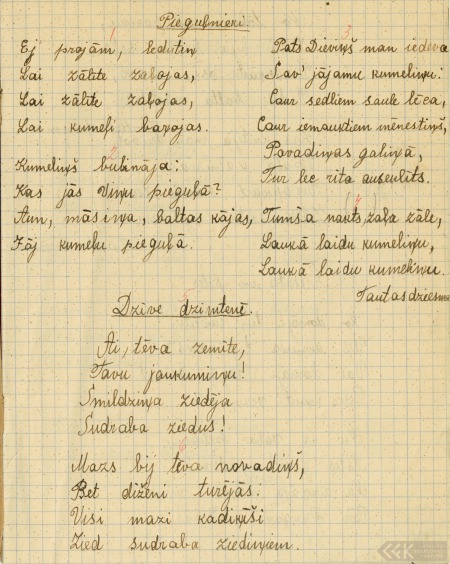 Pieguļnieki.
1
Ej projām, ledutiņ
Lai zālīte zaļojas,
Lai zālīte zaļojas,
Lai kumeļi barojas.
2
Kumeliņš bubināja:
Kas jās viņu pieguļā?
Aun, māsiņa, baltas kājas,
Jāj kumeļu pieguļā.
3
Pats Dieviņš man iedeva
Sav' jājamu kumeliņu:
Caur sedliem saule lēca,
Caur iemauktiem mēnestiņš,
Pavadiņas galiņā,
Tur lec rīta auseklīts.
4
Tumša nakts, zaļa zāle,
Laukā laidu kumeliņu,
Laukā laidu kumeliņu.
Tautasdziesma
Dzīve dzimtenē.
5
Ai, tēva zemīte,
Tavu jaukumiņu!
Smildziņa ziedēja
Sudraba ziedus!
6
Mazs bij tēva novadiņš,
Bet dīženi turējās:
Visi mazi kadiķīši
Zied sudraba ziediņiem.